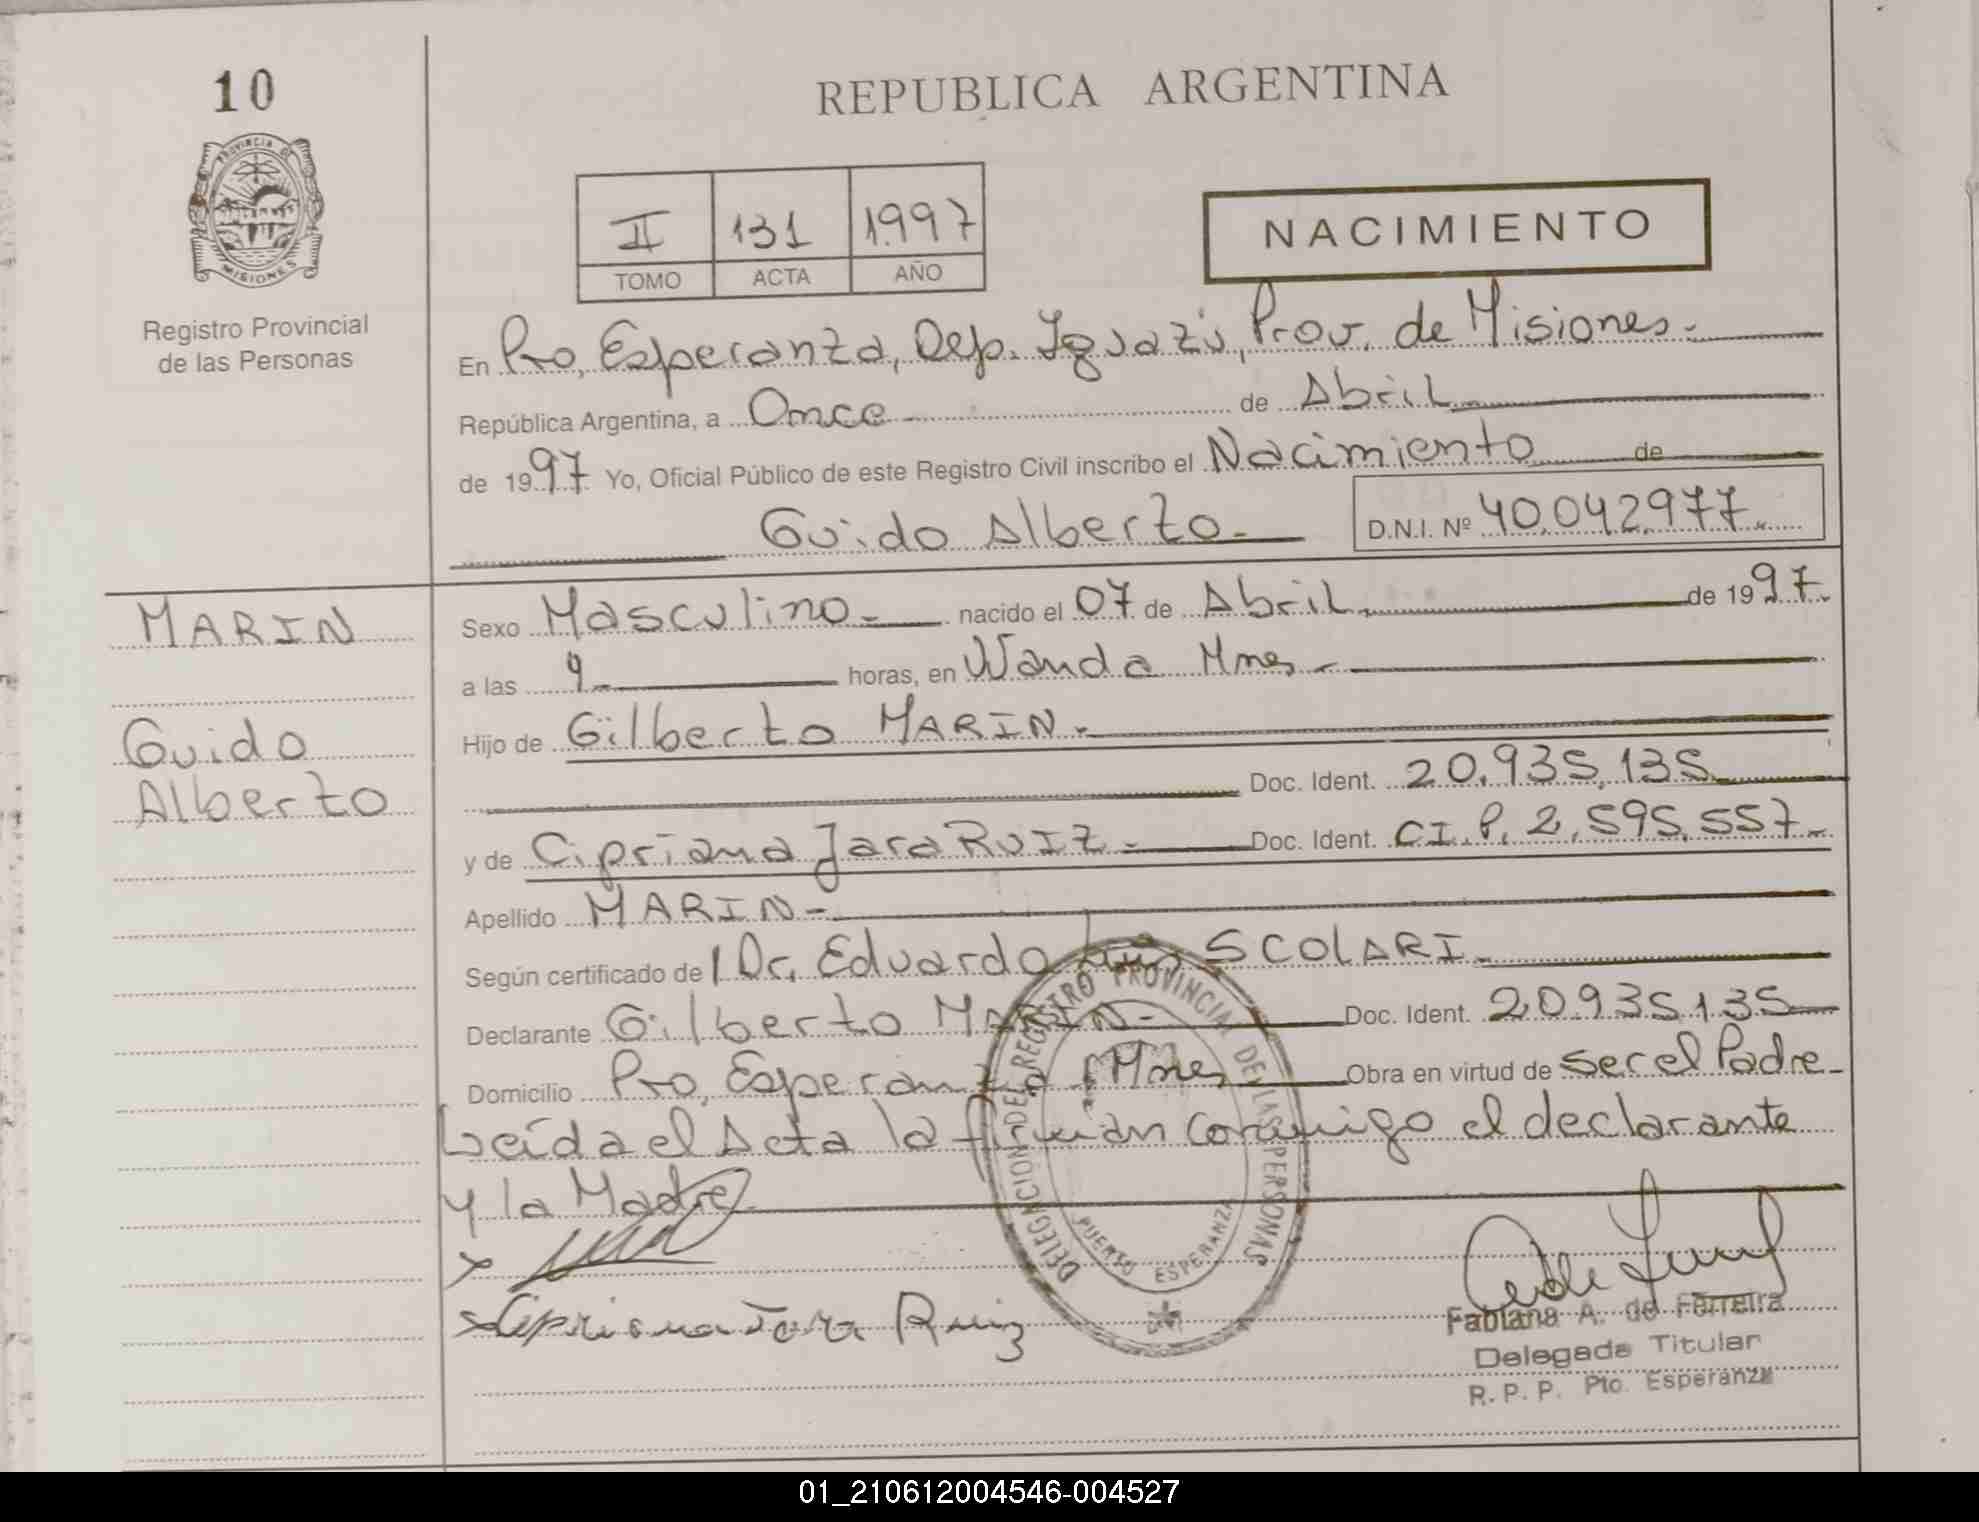 10
REPUBLICA ARGENTINA
PROVINCIA DE
MISIONES
Registro Provincial
de las Personas
II 131 1997
TOMO ACTA AÑO
NACIMIENTO
En Pto. Esperanza, Dep. Iguazú, Prov. de Misiones.-
República Argentina, a Once de Abril
de 1997 Yo, Oficial Público de este Registro Civil inscribo el Nacimiento de
Guido Alberto.- D.N.I. Nº 40.042.977.-
MARIN
Sexo Masculino.- nacido el 07 de Abril de 1997.
a las 9 horas, en Wanda Mnes.-
Guido
Hijo de Gilberto MARIN.-
Doc. Ident. 20.935.135
Alberto
y de Cipriana Jara RUIZ.- Doc. Ident. C.I.P. 2.595.557.-
Apellido MARIN.-
Según certificado del Dr. Eduardo Luis SCOLARI.
Declarante Gilberto MARIN.- Doc. Ident. 20.935.135
Domicilio Pto. Esperanza Mnes Obra en virtud de ser el Padre.-
Leída el Acta la firman conmigo el declarante
y la Madre.
x
x Cipriana Jara Ruiz
DELEGACIÓN DEL REGISTRO PROVINCIAL DE LAS PERSONAS
PUERTO ESPERANZA
Fabiana A. de Ferreira
Delegada Titular
R.P.P. Pto. Esperanza
01_210612004546-004527